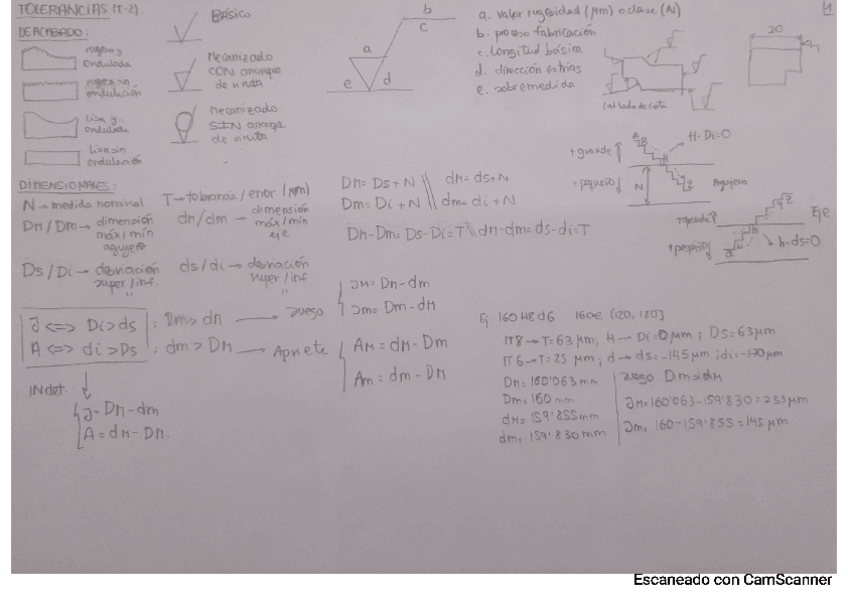 TOLERANCIAS (T-2)
DE ACABADO:
rugosa y
ondulada
rugosa sin
ondulación
Lisa y
ondulada
Lisa sin
ondulación
BÁSICO
Mecanizado
CON arranque
de viruta
Mecanizado
SIN arranque
de viruta
b
c
a
e d
a. valor rugosidad (μm) o clase (N)
b. proceso fabricación
c. Longitud básica
d. dirección estrías
e. sobremedida
20
1
DIMENSIONALES:
N → medida nominal
T → tolerancia / error (μm)
DM / Dm → dimensión
máx / mín
agujero
dM / dm → dimensión
máx / mín
eje
Ds / Di → desviación
super / inf.
ds / di → desviación
super / inf
"
DM = Ds + N || dM = ds + N
Dm = Di + N || dm = di + N
DM - Dm = Ds - Di = T || dM - dm = ds - di = T
H: Di=0
+ grande ↑
+ pequeño ↓
N
Z
Agujero
Z
Eje
+ grande ↑
+ pequeño ↓
h = ds = 0
J <=> Di > ds : Dm > dM → Juego
JM = DM - dm
Jm = Dm - dM
A <=> di > Ds : dm > DM → Apriete
AM = dM - Dm
Am = dm - DM
INdet.
J = DM - dm
A = dM - Dm.
Ej: 160 H8 d6 160 ∈ (120, 180]
IT8 → T = 63 μm, H → Di = 0 μm ; Ds = 63 μm
IT6 → T = 25 μm, d → ds = -145 μm ; di = -170 μm
DM = 160'063 mm
Dm = 160 mm
dM = 159'855 mm
dm = 159'830 mm
Juego Dm > dM
JM = 160'063 - 159'830 = 233 μm
Jm = 160 - 159'855 = 145 μm
Escaneado con CamScanner